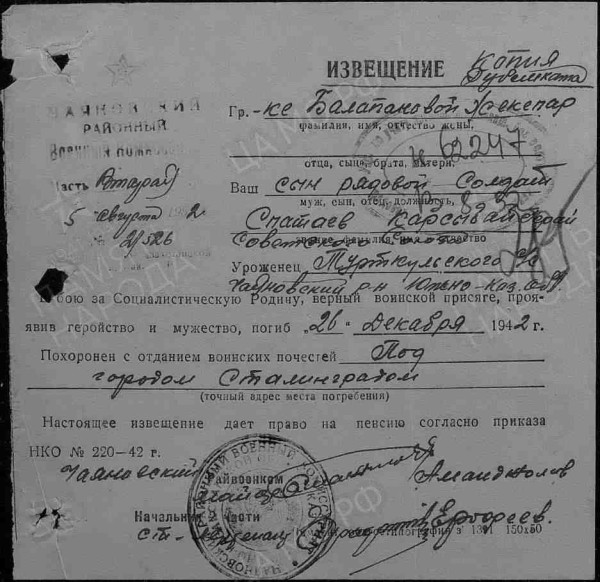 ИЗВЕЩЕНИЕ
Копия
Дубликата
ЧАЯНОВСКИЙ
РАЙОННЫЙ
Военный комиссариат
Часть Вторая
5 августа
№ 2/526
Гр.-ке Балапановой
фамилия, имя, отчество жены,
отца, сына, брата, матери,
№ 62247
Ваш сын рядовой Солдат
муж, сын, отец, должность,
Спатаев Карсыбай
звание, фамилия, имя, отчество
Уроженец Турткульского с/с
Чаяновский р-н Южно-Каз. обл.
В бою за Социалистическую Родину, верный воинской присяге, проя-
явив геройство и мужество, погиб „26" Декабря 1942 г.
Похоронен с отданием воинских почестей Под
городом Сталинградом
(точный адрес места погребения)
Настоящее извещение дает право на пенсию согласно приказа
НКО № 220-42 г.
Чаяновский Райвоенком
майор Аманджолов
Начальник 2 части
ст. лейтенант Ерофеев.
з 1391 150х50